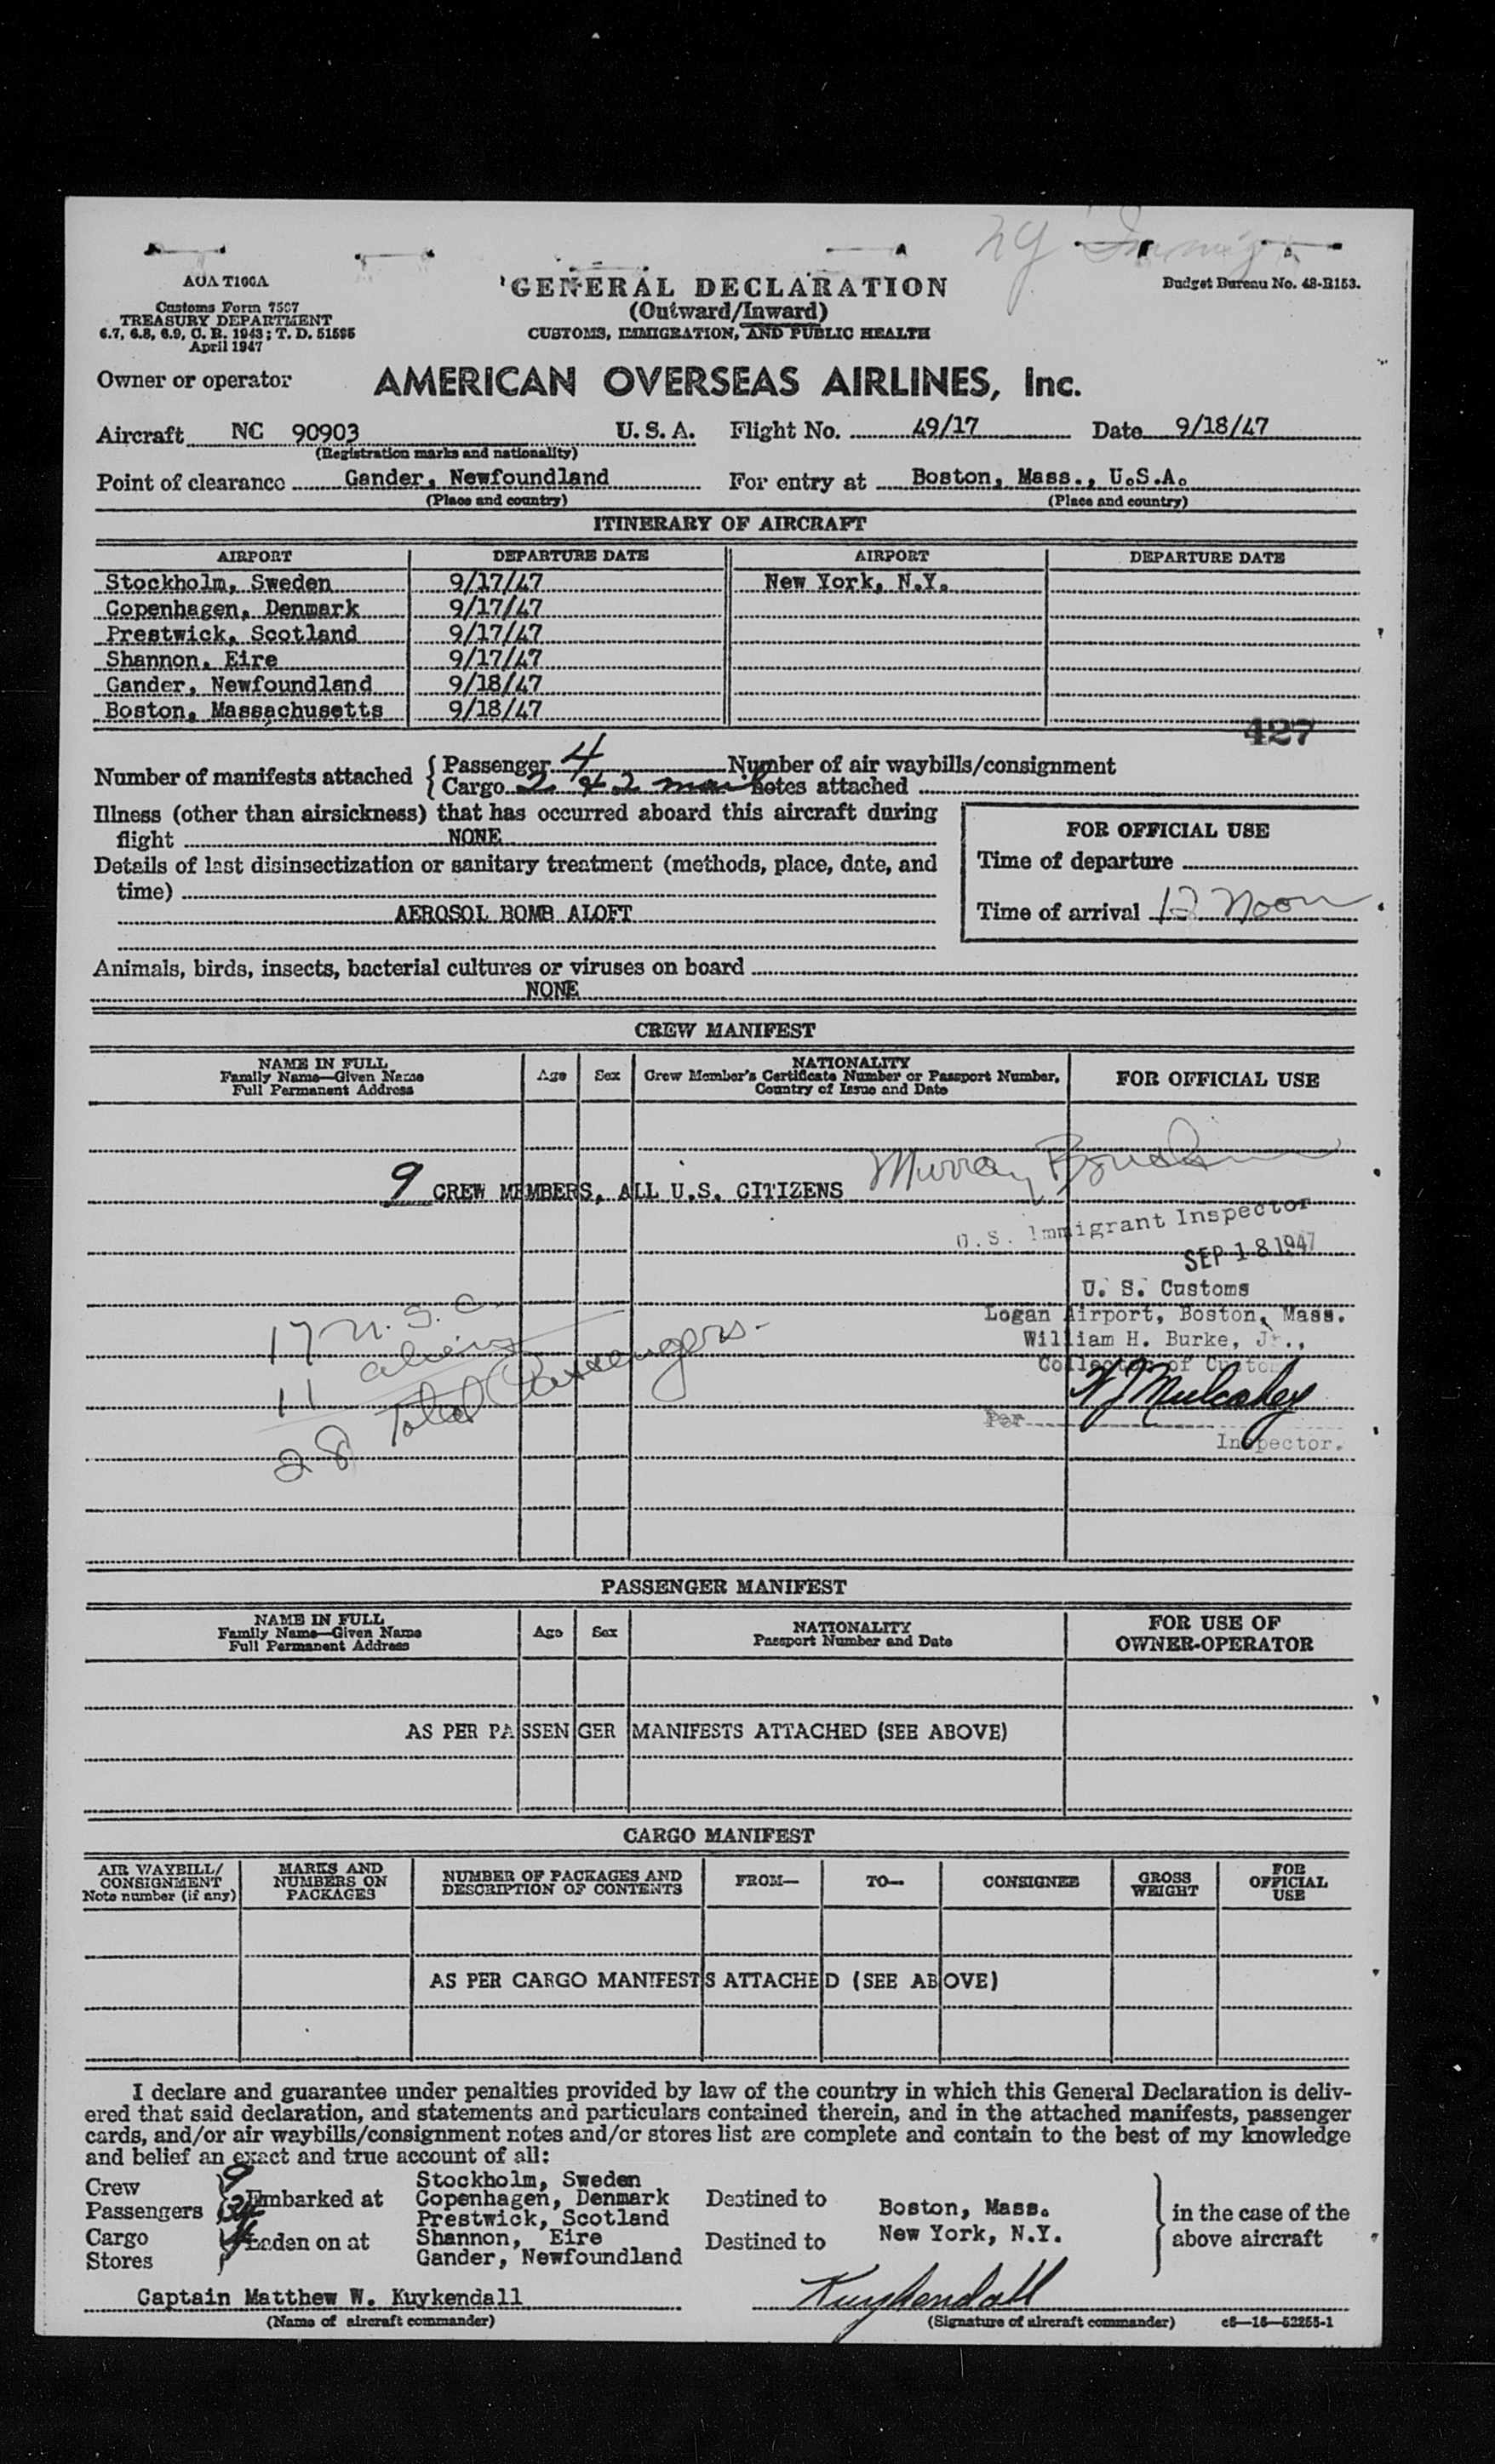 AOA T100A
Customs Form 7507
TREASURY DEPARTMENT
6.7, 6.8, 6.9, C. R. 1943; T. D. 51595
April 1947
GENERAL DECLARATION
(Outward/Inward)
CUSTOMS, IMMIGRATION, AND PUBLIC HEALTH
Budget Bureau No. 48-R153.
Owner or operator AMERICAN OVERSEAS AIRLINES, Inc.
Aircraft NC 90903 U. S. A. Flight No. 49/17 Date 9/18/47
(Registration marks and nationality)
Point of clearance Gander, Newfoundland For entry at Boston, Mass., U.S.A.
(Place and country) (Place and country)
ITINERARY OF AIRCRAFT
AIRPORT DEPARTURE DATE AIRPORT DEPARTURE DATE
Stockholm, Sweden 9/17/47 New York, N.Y.
Copenhagen, Denmark 9/17/47
Prestwick, Scotland 9/17/47
Shannon, Eire 9/17/47
Gander, Newfoundland 9/18/47
Boston, Massachusetts 9/18/47
427
Number of manifests attached { Passenger 4 Number of air waybills/consignment
Cargo 2 & 2 mail notes attached
Illness (other than airsickness) that has occurred aboard this aircraft during
flight NONE
Details of last disinsectization or sanitary treatment (methods, place, date, and
time)
AEROSOL BOMB ALOFT
FOR OFFICIAL USE
Time of departure
Time of arrival 12 Noon
Animals, birds, insects, bacterial cultures or viruses on board
NONE
CREW MANIFEST
NAME IN FULL
Family Name—Given Name
Full Permanent Address
Age Sex
NATIONALITY
Crew Member's Certificate Number or Passport Number,
Country of Issue and Date
FOR OFFICIAL USE
9 CREW MEMBERS, ALL U.S. CITIZENS
Murray
U.S. Immigrant Inspector
SEP 18 1947
U. S. Customs
Logan Airport, Boston, Mass.
William H. Burke, Jr.,
Collector of Customs
Per
Mulcahey
Inspector.
17 U.S.C.
11 aliens
28 Total Passengers.
PASSENGER MANIFEST
NAME IN FULL
Family Name—Given Name
Full Permanent Address
Age Sex
NATIONALITY
Passport Number and Date
FOR USE OF
OWNER-OPERATOR
AS PER PASSENGER MANIFESTS ATTACHED (SEE ABOVE)
CARGO MANIFEST
AIR WAYBILL/
CONSIGNMENT
Note number (if any)
MARKS AND
NUMBERS ON
PACKAGES
NUMBER OF PACKAGES AND
DESCRIPTION OF CONTENTS
FROM—
TO—
CONSIGNEE
GROSS
WEIGHT
FOR
OFFICIAL
USE
AS PER CARGO MANIFESTS ATTACHED (SEE ABOVE)
I declare and guarantee under penalties provided by law of the country in which this General Declaration is deliv-
ered that said declaration, and statements and particulars contained therein, and in the attached manifests, passenger
cards, and/or air waybills/consignment notes and/or stores list are complete and contain to the best of my knowledge
and belief an exact and true account of all:
Crew 9
Passengers
Cargo
Stores
Embarked at
Laden on at
Stockholm, Sweden
Copenhagen, Denmark
Prestwick, Scotland
Shannon, Eire
Gander, Newfoundland
Destined to
Destined to
Boston, Mass.
New York, N.Y.
in the case of the
above aircraft
Captain Matthew W. Kuykendall Kuykendall
(Name of aircraft commander) (Signature of aircraft commander) c6—16—52255-1